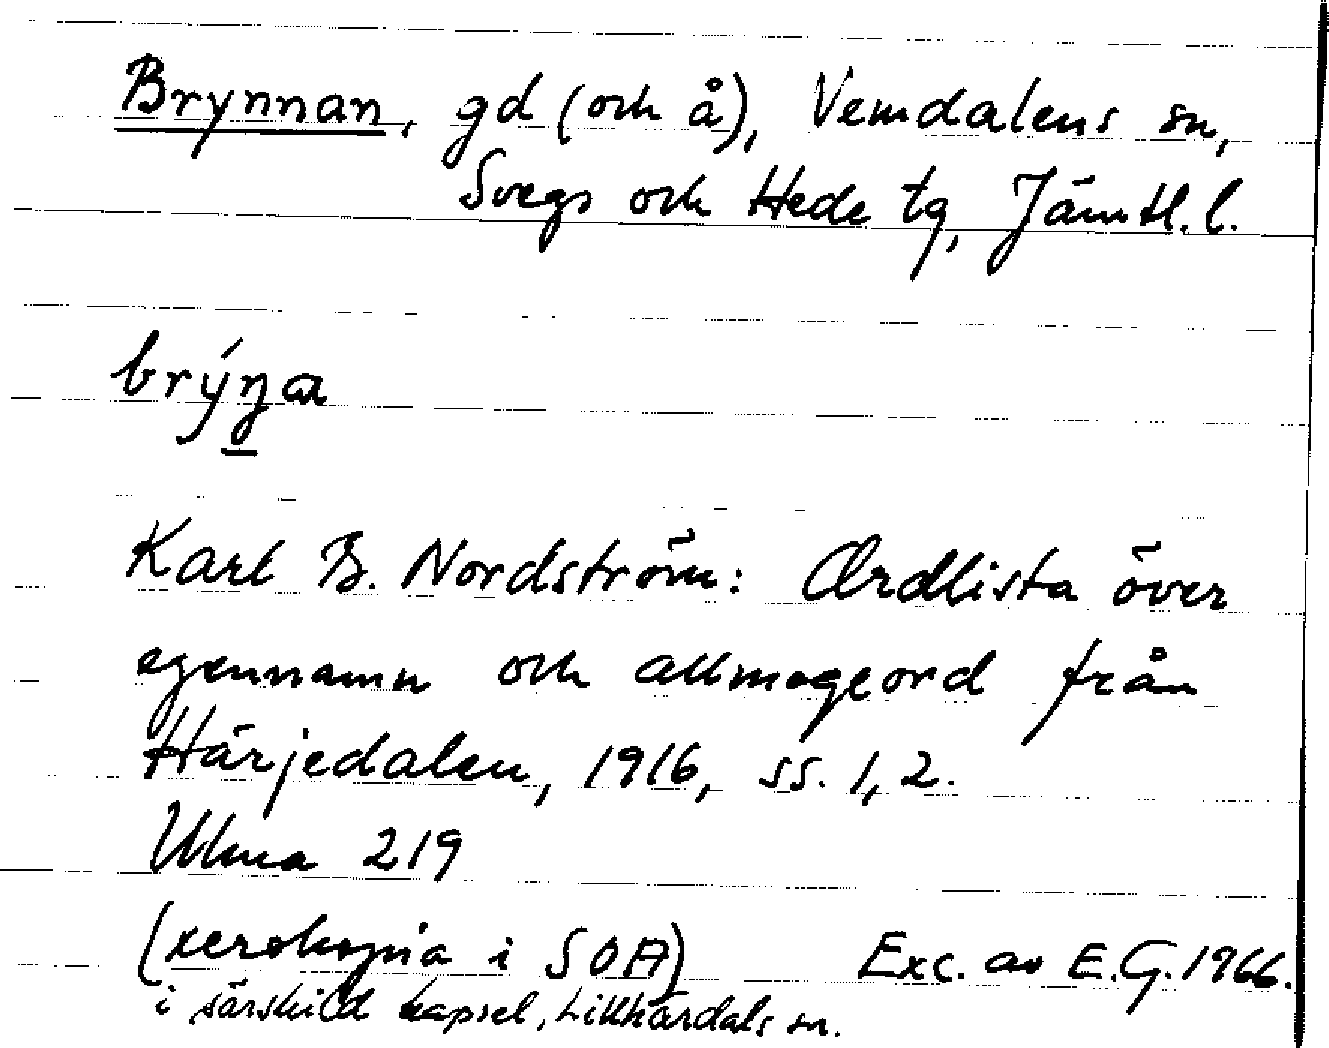 Brynnan, gd (och å), Vemdalens sn,
Svegs och Hede tg, Jämtl. l.
Karl B. Nordström: Ordlista över
egennamn och allmogeord från
Härjedalen, 1916, ss. 1, 2.
Ulma 219
(xerokopia i SOA) Exc. av E.G. 1966.
i särskild kapsel, Lillhärdals sn.